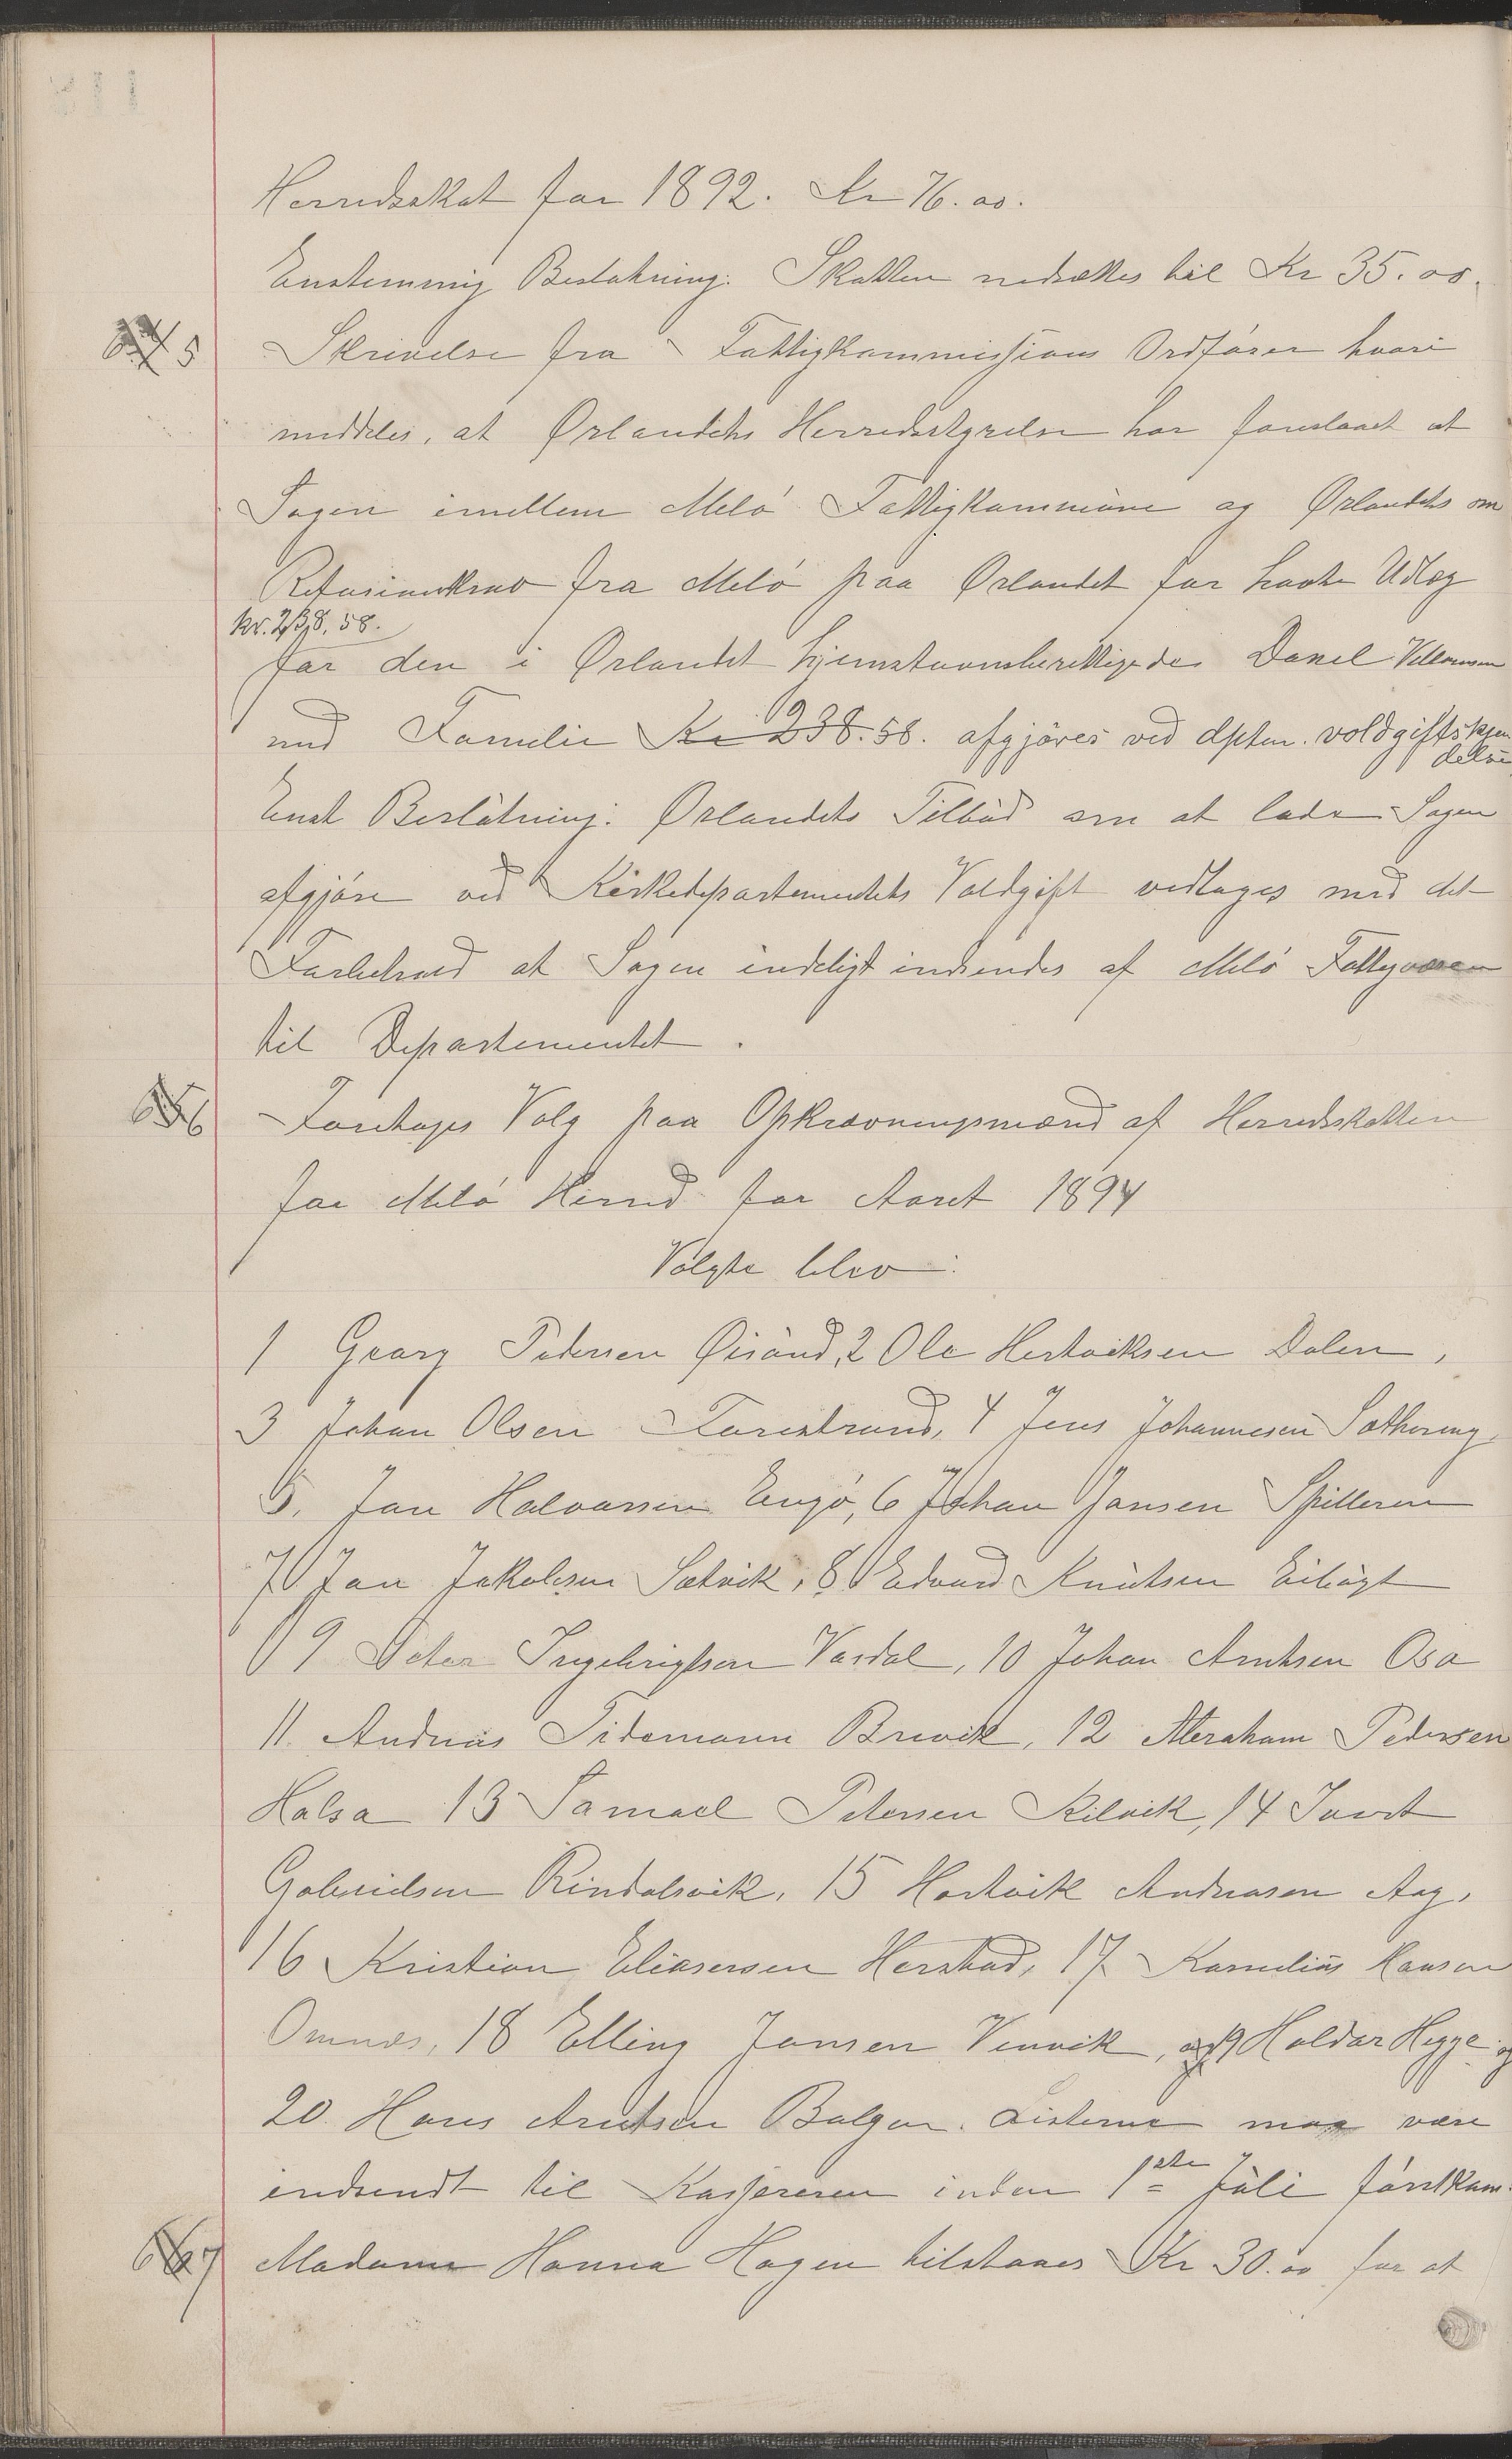 Herredsskat for 1892. Kr 76.00.
Enstemmig Beslutning: Skatten nedsættes til Kr 35.00.
5 Skrivelse fra Fattigkommissions Ordfører hvori
meddeles, at Ørlandets Herredsstyrelse har foreslaaet at
Sagen imellem Melø Fattigkommune og Ørlandets om
Refusionskrav fra Melø paa Ørlandet for havte Udlæg
kr. 238.58.
for den i Ørlandet hjemstavnsberettigede Danel
med Familie Kr 238.58. afgjøres ved dpten. voldgiftskjen
delse
Enst Beslutning: Ørlandets Tilbud om at lade Sagen
afgjøre ved Kirkedepartementets Voldgift vedtages med det
Forbehold at Sagen endeligt indsendes af Melø Fattigvæsen
til Departementet.
6 Foretages Valg paa Opkrævningsmænd af Herredsskatten
for Melø Herred for Aaret 1894
Valgte blev:
1 Georg Pedersen Øisund, 2 Ole Hertviksen Dalen,
3 Johan Olsen Forestrand, 4 Jens Johannesen Sathøreng,
5. Jan Halvorsen Engø, 6 Johan Jansen Spilderen
7 Jan Jakobsen Sætvik, 8 Edvard Knudsen
9 Peter Ingebrigtsen Vasdal, 10 Johan Arntsen Osa
11. Andreas Tidemann Brevik, 12 Abraham Pedersen
Halsa 13 Samuel Petersen Kilvik, 14 Sivert
Gabrielsen Rindalsvik, 15 Hartvik Andreasen Aag,
16 Kristian Eliasersen Herstad, 17 Kornelius Hansen
Omnes, 18 Elling Jansen Venvik, 19 Haldor Hegge og
20. Hans Arntsen Bolgen. Listerne maa være
indsendt til Kassereren inden 1ste Juli førstkom.
7 Madame Hanna Hagen tilstaaes Kr 30.00 for at